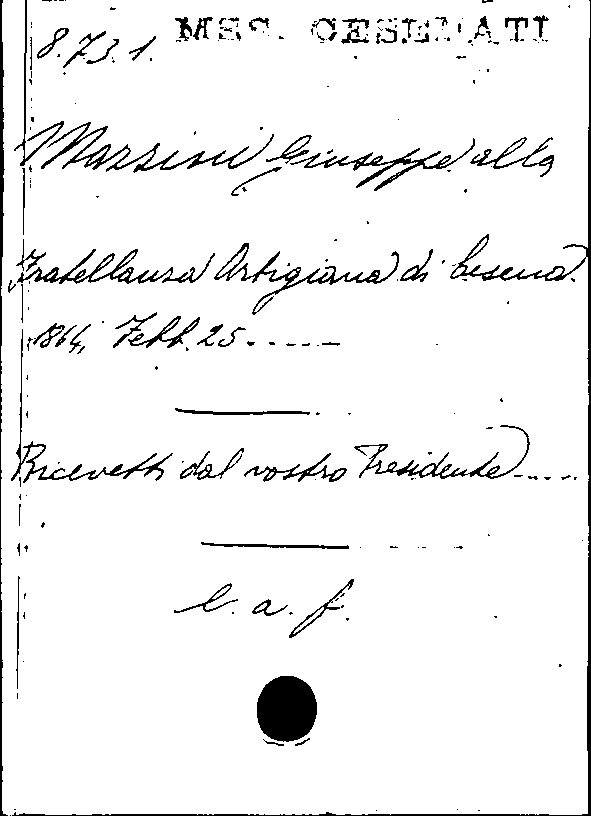 8.73.1. MSS. CESENATI
Mazzini Giuseppe alla
Fratellanza Artigiana di Cesena.
1864, Febb. 25.-----
Ricevetti dal vostro Presidente.....
l. a. f.